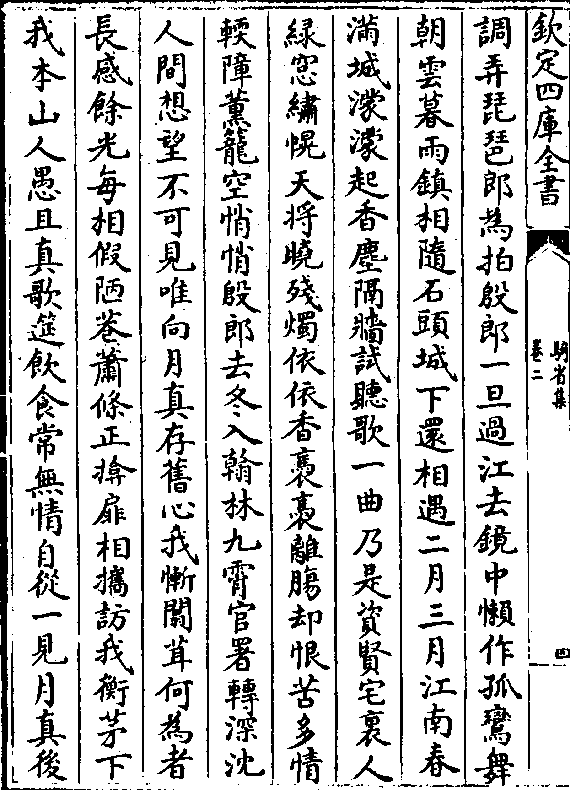 欽定四庫全書
騎省集
卷二
四
調弄琵琶郎為拍殷郎一旦過江去鏡中懶作孤鸞舞
朝雲暮雨鎮相隨石頭城下還相遇二月三月江南春
滿城濛濛起香塵隔牆試聽歌一曲乃是資賢宅裏人
緑窓繡幌天將曉殘燭依依香裊裊離腸却恨苦多情
輭障薫籠空悄悄殷郎去冬入翰林九霄官署轉深沈
人間想望不可見唯向月真存舊心我慚闒茸何為者
長感餘光每相假陋巷蕭條正揜扉相攜訪我衡茅下
我本山人愚且真歌筵飲食常無情自從一見月真後